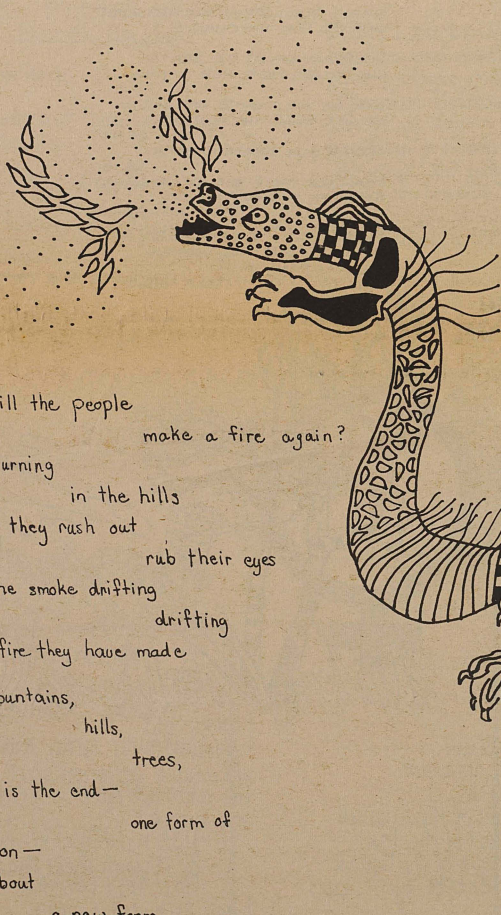 ill the people
make a fire again?
urning
in the hills
they rush out
rub their eyes
he smoke drifting
drifting
fire they have made
ountains,
hills,
trees,
is the end—
one form of
on—
bout
a new form